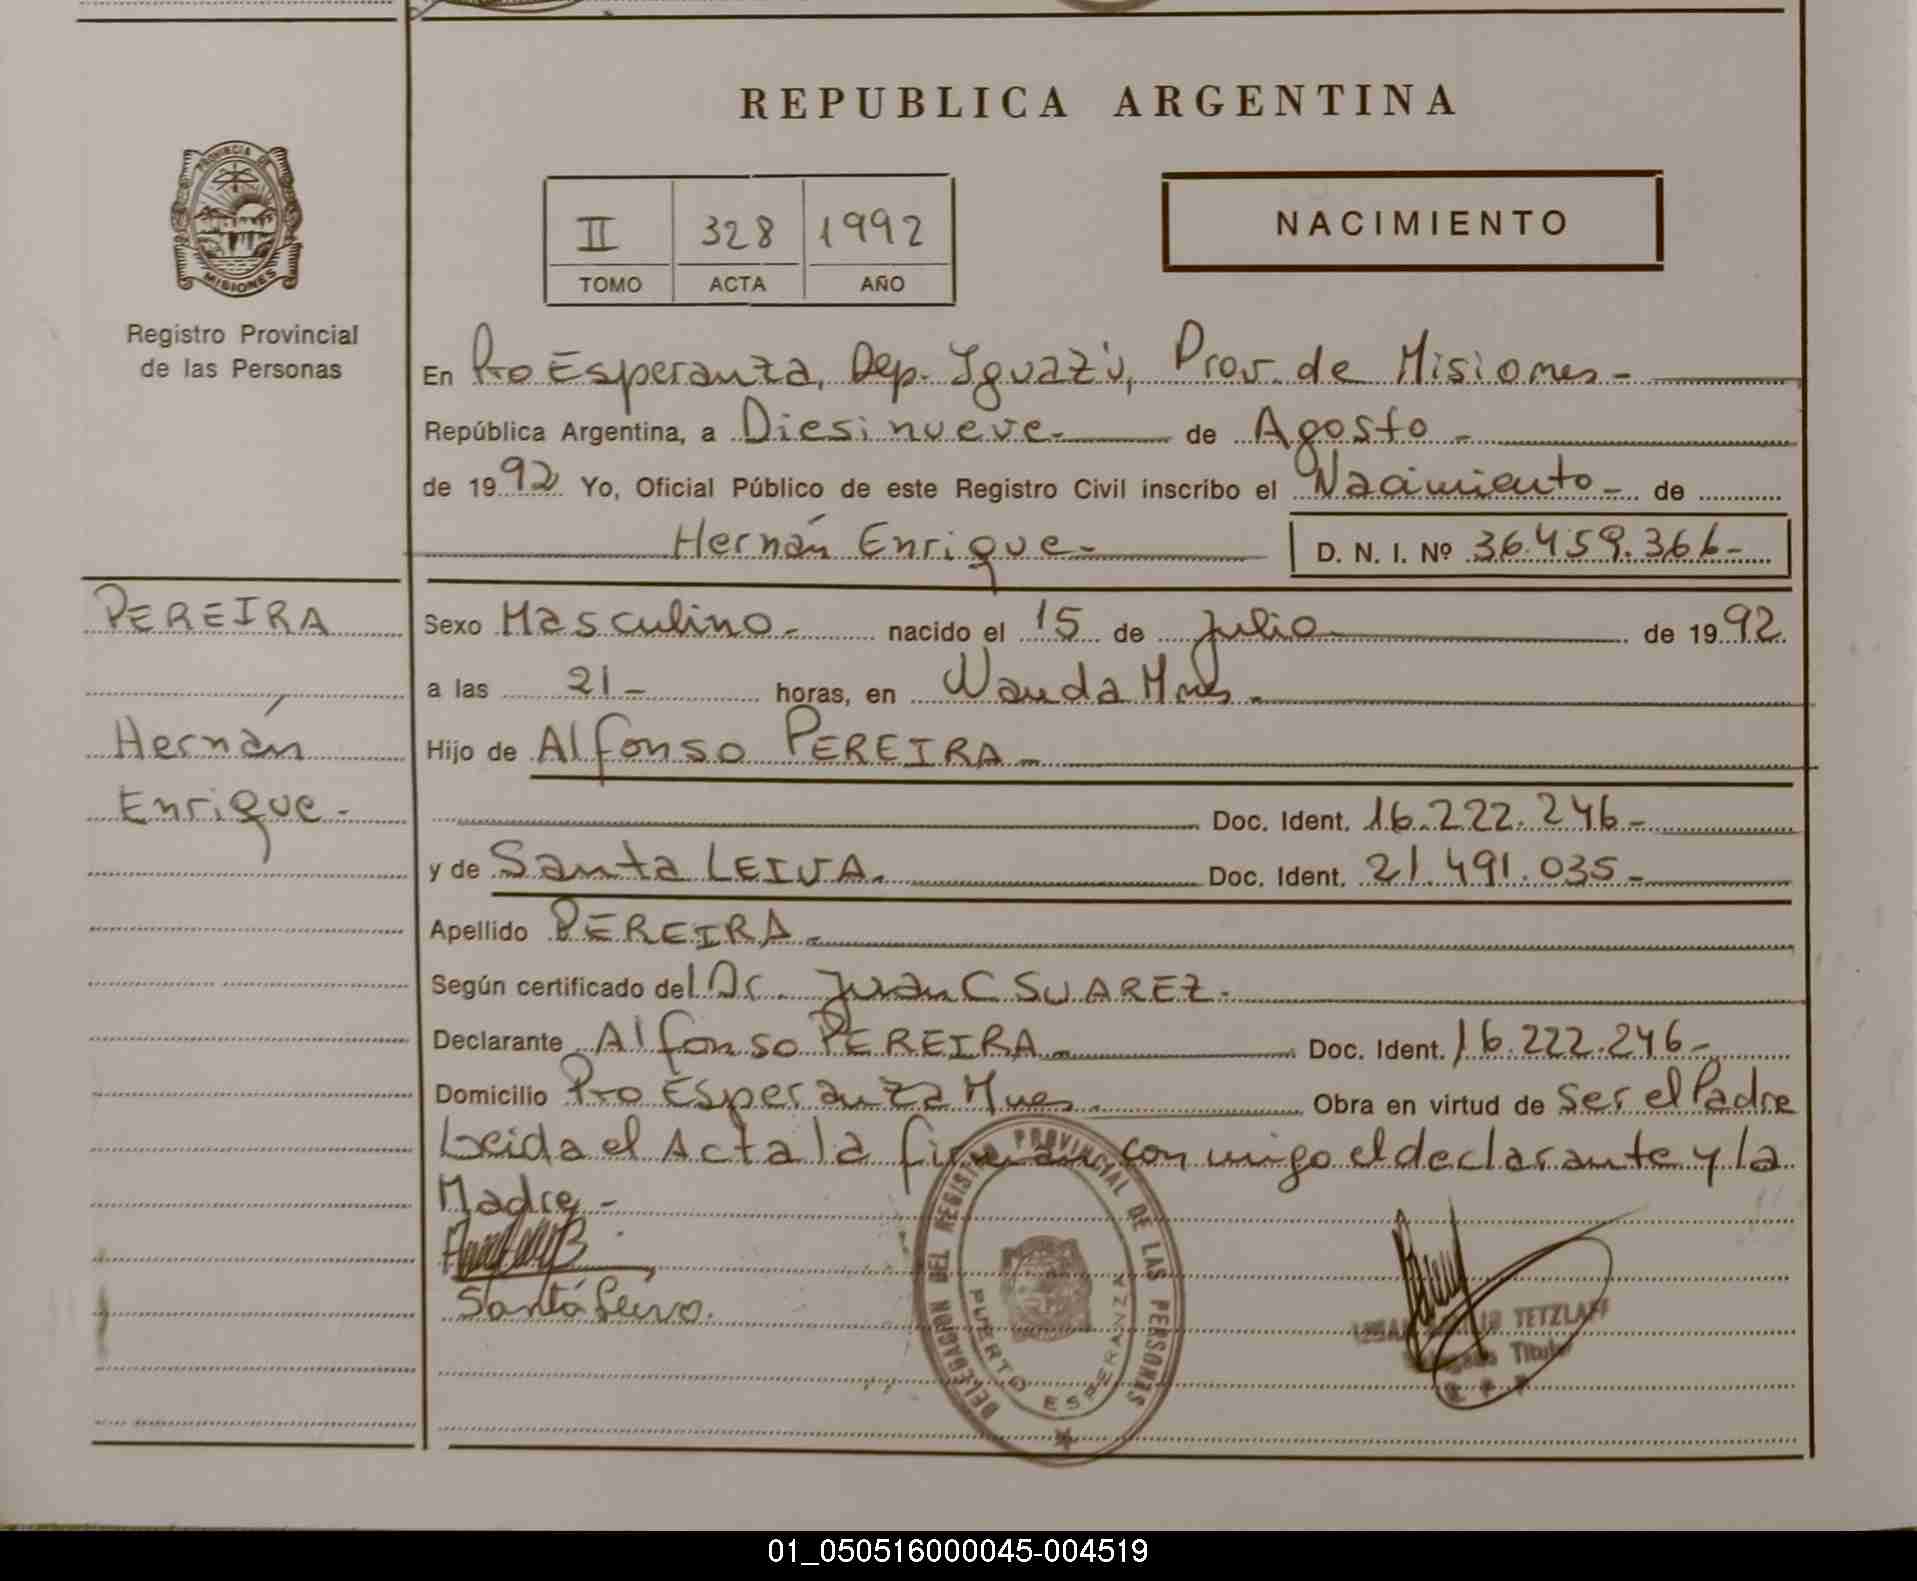 REPUBLICA ARGENTINA
PROVINCIA DE MISIONES
Registro Provincial
de las Personas
II 328 1992
TOMO ACTA AÑO
NACIMIENTO
En Pto Esperanza, Dep. Iguazú, Prov. de Misiones -
República Argentina, a Diesinueve - de Agosto -
de 1992 Yo, Oficial Público de este Registro Civil inscribo el Nacimiento - de
Hernán Enrique - D. N. I. Nº 36.459.366-
PEREIRA
Hernán
Enrique -
Sexo Masculino - nacido el 15 de Julio de 1992
a las 21 - horas, en Wanda Mnes -
Hijo de Alfonso PEREIRA -
Doc. Ident. 16.222.246-
y de Santa LEIVA. Doc. Ident. 21.491.035-
Apellido PEREIRA -
Según certificado del Dr. Juan C SUAREZ -
Declarante Alfonso PEREIRA - Doc. Ident. 16.222.246-
Domicilio Pto Esperanza Mnes. Obra en virtud de ser el Padre
Leida el Acta la firman con migo el declarante y la
Madre -
Santa Leiva.
DELEGACION DEL REGISTRO PROVINCIAL DE LAS PERSONAS
PUERTO ESPERANZA
TETZLAFF
Titular
01_050516000045-004519